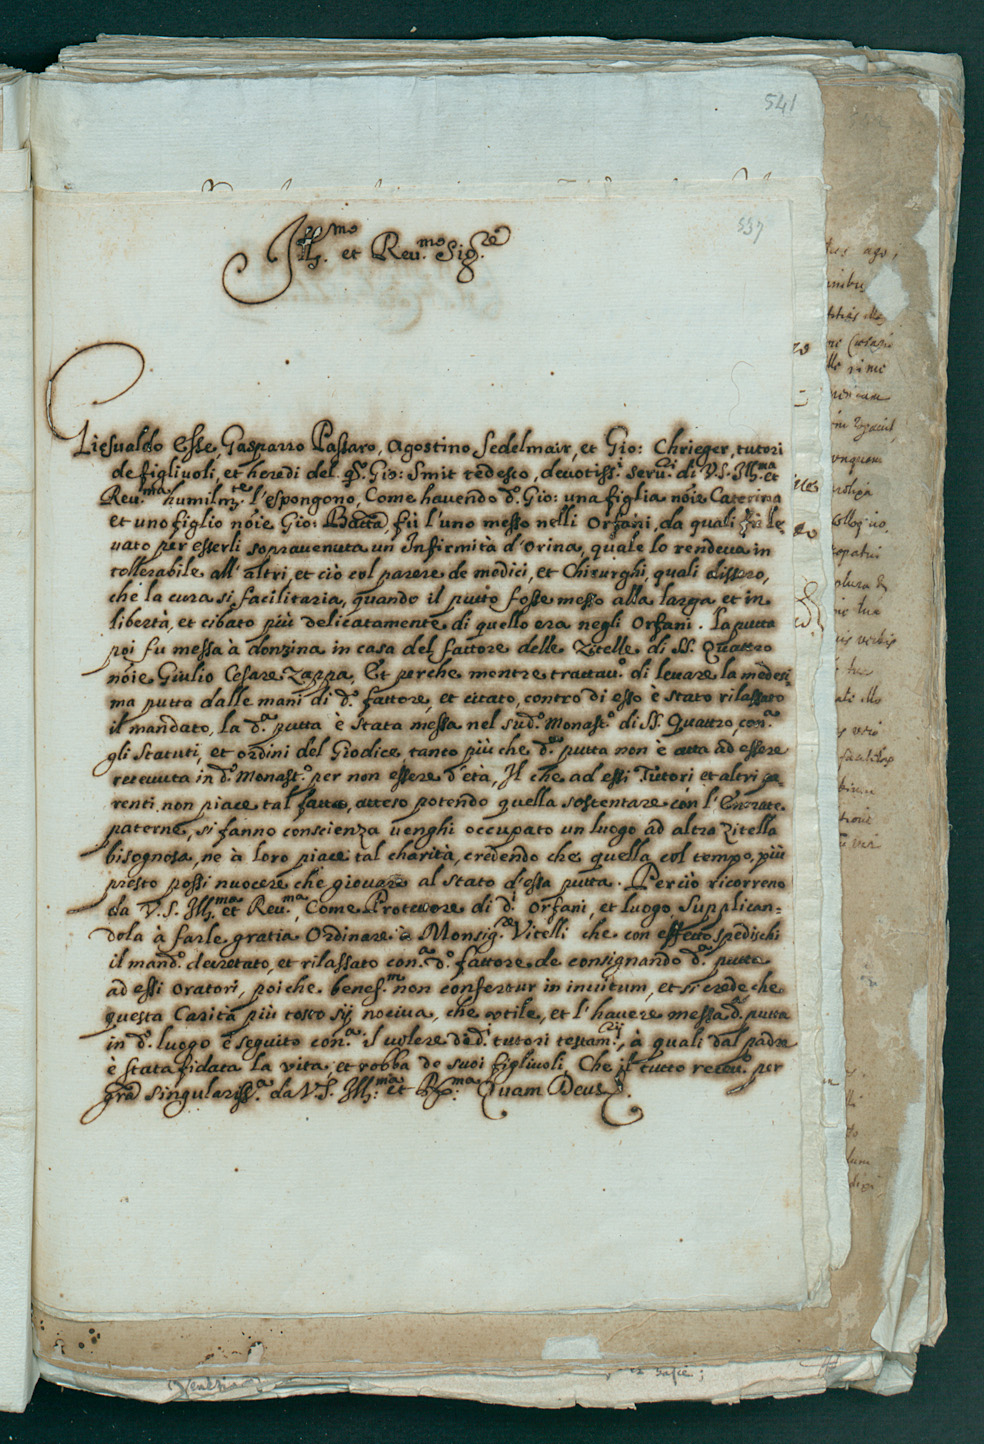 541
537
Ill.mo et Reu.mo Sig.re
Liesualdo Esse, Gasparro Passaro, Agostino Sedelmair, et Gio: Chrieger, tutori
de figliuoli, et heredi del q. Gio: Smit tedesco, deuotiss.i seru.ri di V.S. Ill.ma et
Reu.ma humilm.te l'espongono, Come hauendo d.o Gio: una figlia nõie Caterina
et uno figlio nõie Gio: Batta, fù l'uno messo nelli Orfani, da quali fù le
uato per esserli soprauenuta un Infirmità d'Orina, quale lo rendeua in
tollerabile all'altri, et ciò col parere de medici, et Chirurghi, quali dissero,
che la cura si facilitaria, quando il putto fosse messo alla larga et in
libertà, et cibato più delicatamente di quello era negli Orfani. La putta
poi fu messa à donzina in casa del fattore delle Zitelle di SS. Quattro
nõie Giulio Cesare Zappa, Et perche mentre trattau.o di leuare la medesi
ma putta dalle mani di d.o fattore, et citato, contro di esso è stato rilassato
il mandato, la d.a putta è stata messa nel sud.o Monast.o di SS. Quattro, con.a
gli statuti, et ordini del Giodice, tanto più che d.a putta non è atta ad essere
receuuta in d.o Monast.o per non essere d'età, Il che ad essi Tutori et altri pa
renti non piace tal fatto, atteso potendo quella sostentare con l'Entrate
paterne, si fanno conscienza uenghi occupato un luogo ad altra Zitella
bisognosa, ne à loro piace tal charità, credendo che quella col tempo, più
presto possi nuocere che giouare al stato d'essa putta. Perciò ricorreno
da V.S. Ill.ma et Reu.ma, Come Protettore di d.i Orfani, et luogo Supplican=
dola à farle gratia Ordinare à Monsig.re Vitelli che con effetto spedischi
il mand.o decretato, et rilassato con.a d.o fattore de consignando d.a putta
ad essi Oratori, poiche benef.m non confertur in inuitum, et si crede che
questa Carità più tosto sij nociua, che utile, et l'hauere messa d.a putta
in d.o luogo è seguito con.a il uolere de d.i tutori testam.rij, à quali dal padre
è stata fidata la vita, et robba de suoi figliuoli, Che il tutto receu.o per
gra singulariss.a da V.S. Ill.ma et R.ma Quam Deus.